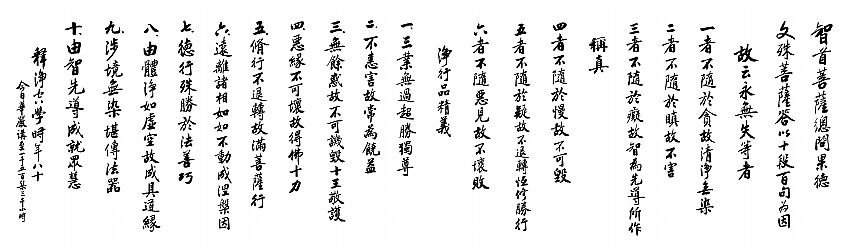 智首菩薩總問果德
文殊菩薩答以十段百句為因
故云永無失等者
一者不隨於貪故清淨無染
二者不隨於瞋故不害
三者不隨於癡故智為先導所作
稱真
四者不隨於慢故不可毀
五者不隨於疑故不退轉恆修勝行
六者不隨惡見故不壞敗
淨行品精義
一．三業無過超勝獨尊
二．不恚害故常為饒益
三．無餘惑故不可譏毀十王敬護
四．惡緣不可壞故得佛十力
五．脩行不退轉故滿菩薩行
六．遠離諸相如如不動成涅槃因
七．德行殊勝於法善巧
八．由體淨如虛空故成具道緣
九．涉境無染堪傳法器
十．由智先導成就眾慧
釋淨空學時年八十
今日華嚴講至一千五百